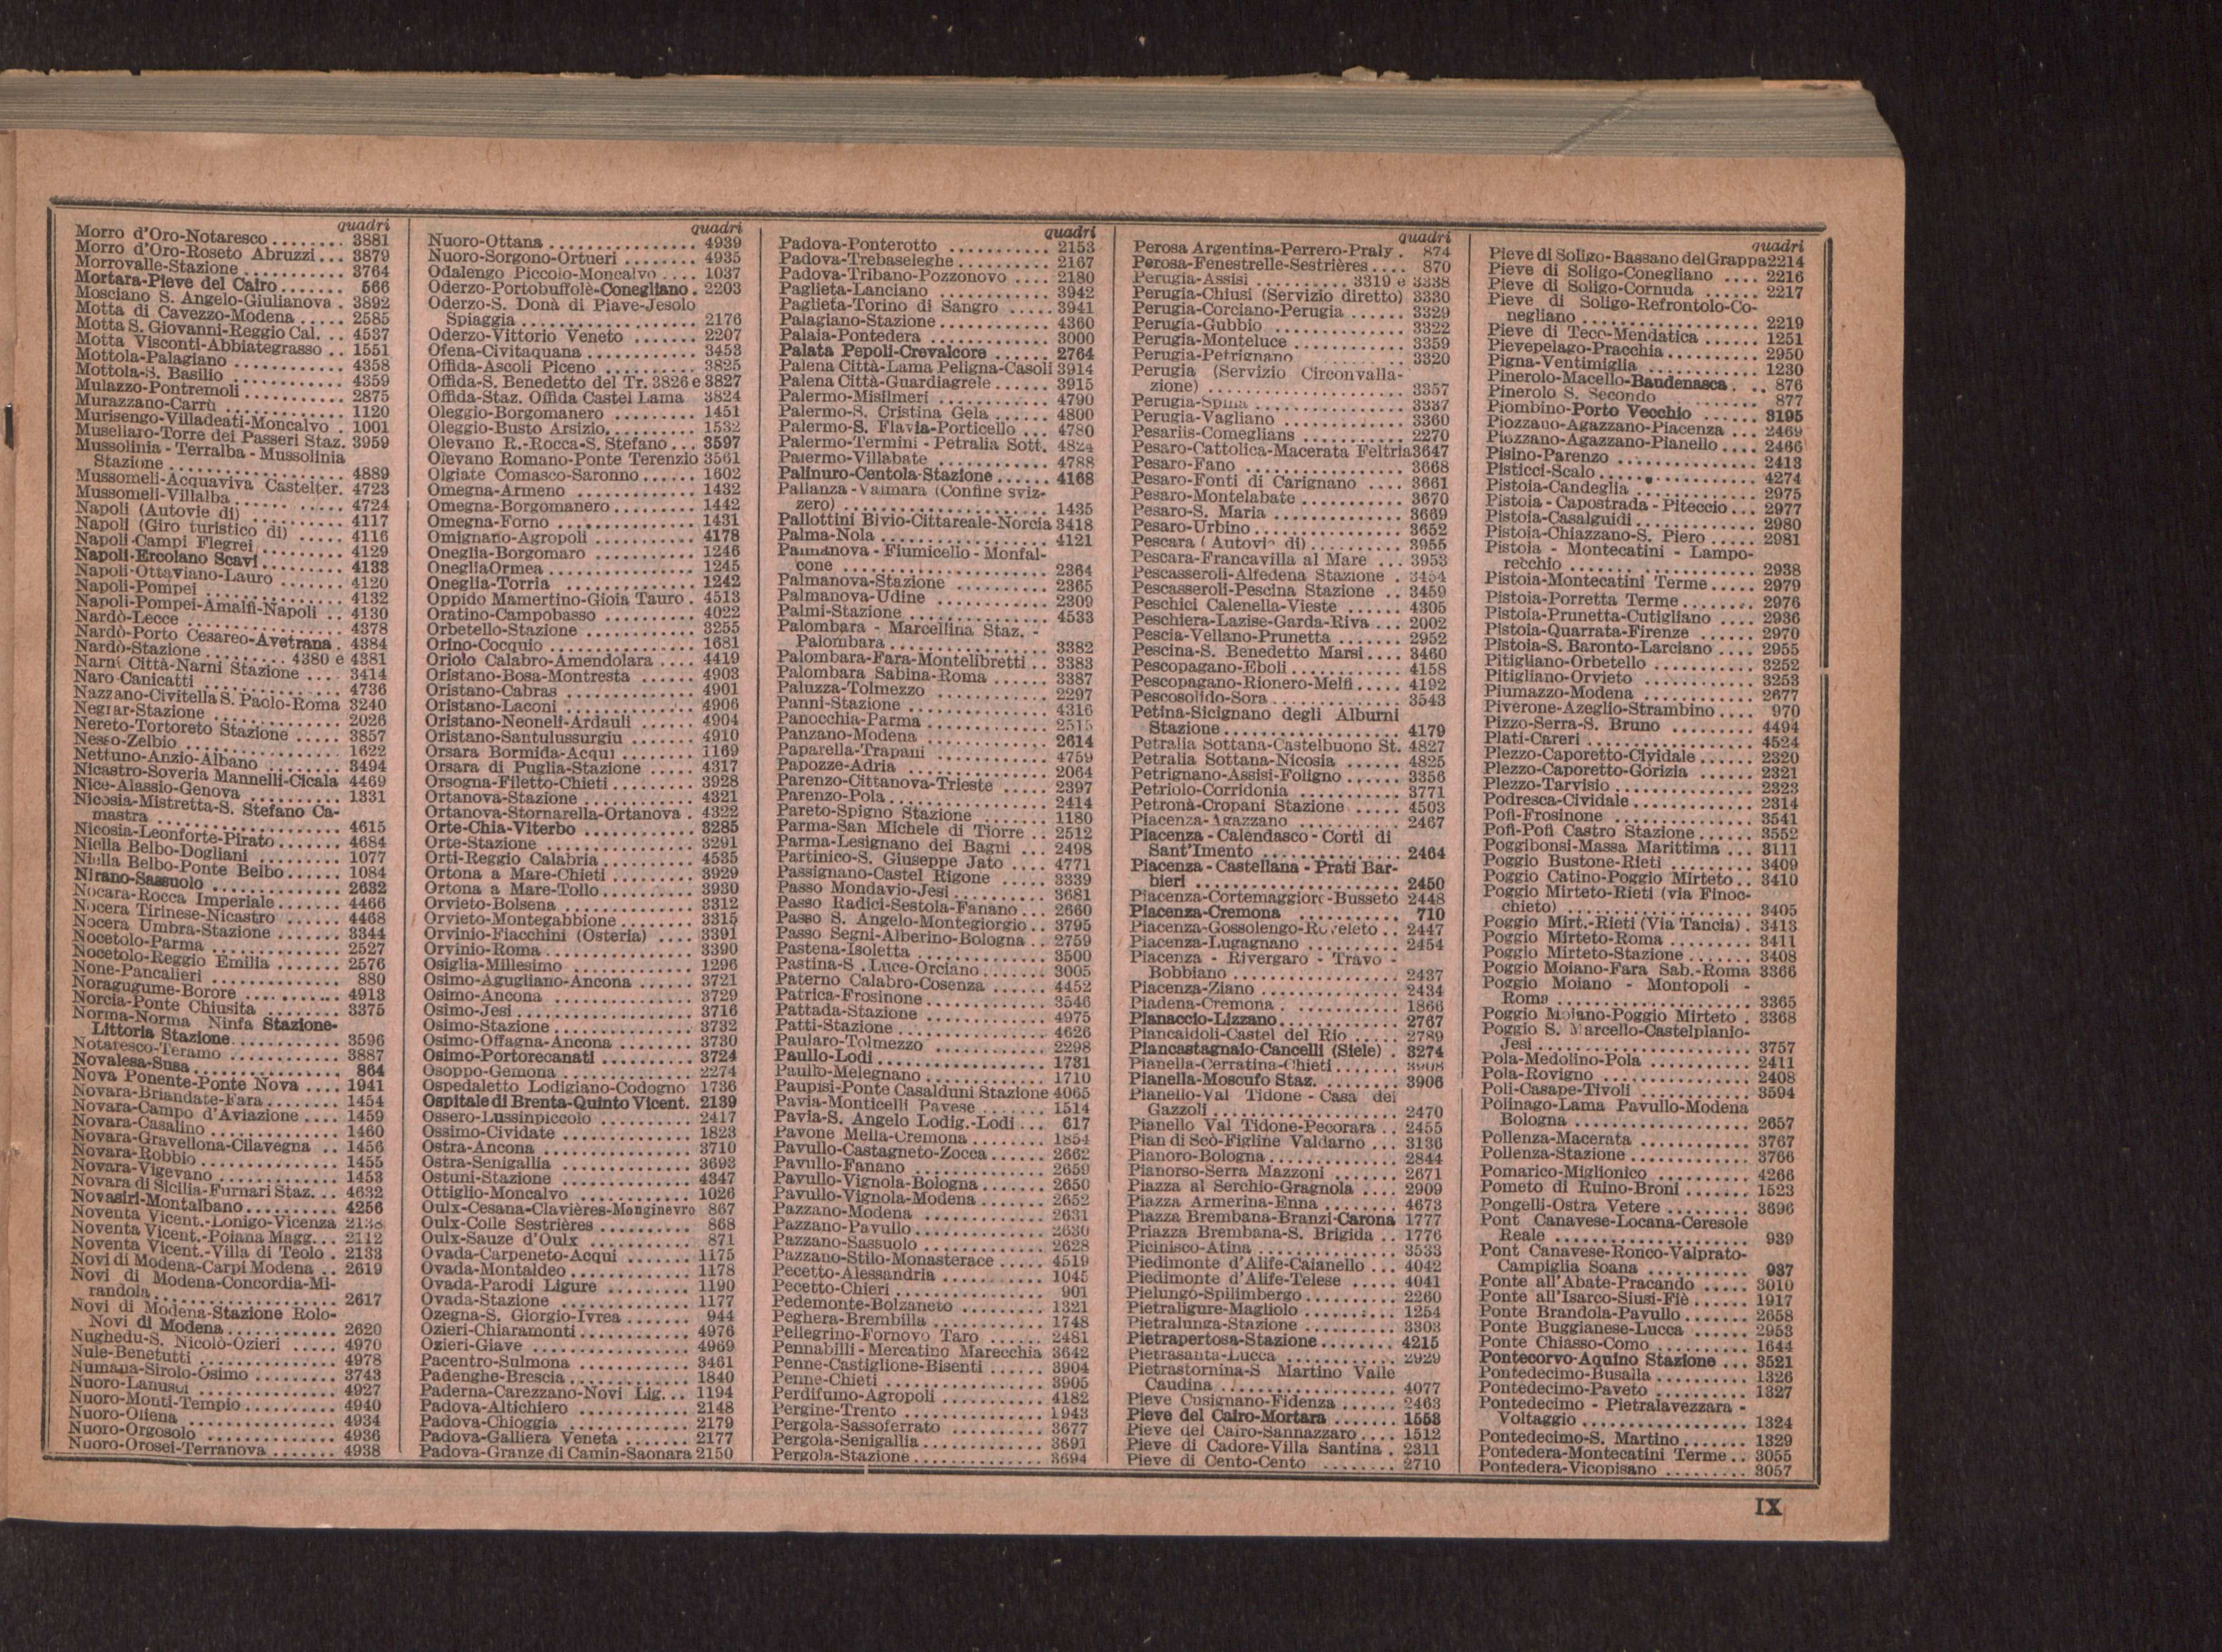 quadri
Morro d'Oro-Notaresco ........ 3881
Morro d'Oro-Roseto Abruzzi... 3879
Morrovalle-Stazione ........... 3764
Mortara-Pieve del Cairo....... 566
Mosciano S. Angelo-Giulianova . 3892
Motta di Cavezzo-Modena ..... 2585
Motta S. Giovanni-Reggio Cal. .. 4537
Motta Visconti-Abbiategrasso .. 1551
Mottola-Palagiano ............ 4358
Mottola-S. Basilio ............ 4359
Mulazzo-Pontremoli ........... 2875
Murazzano-Carrù ............ 1120
Murisengo-Villadeati-Moncalvo . 1001
Musellaro-Torre dei Passeri Staz. 3959
Mussolinia - Terralba - Mussolinia
Stazione .................. 4889
Mussomeli-Acquaviva Castelter. 4723
Mussomeli-Villalba ............ 4724
Napoli (Autovie di) .......... 4117
Napoli (Giro turistico di) ..... 4116
Napoli-Campi Flegrei ......... 4129
Napoli-Ercolano Scavi ......... 4133
Napoli-Ottaviano-Lauro ....... 4120
Napoli-Pompei .............. 4132
Napoli-Pompei-Amalfi-Napoli .. 4130
Nardò-Lecce ................ 4378
Nardò-Porto Cesareo-Avetrana . 4384
Nardò-Stazione ......... 4380 e 4381
Narni Città-Narni Stazione .... 3414
Naro-Canicatti .............. 4736
Nazzano-Civitella S. Paolo-Roma 3240
Negrar-Stazione ............. 2026
Nereto-Tortoreto Stazione ..... 3857
Nesso-Zelbio ................ 1622
Nettuno-Anzio-Albano ........ 3494
Nicastro-Soveria Mannelli-Cicala 4469
Nice-Alassio-Genova .......... 1331
Nicosia-Mistretta-S. Stefano Ca-
mastra ................... 4615
Nicosia-Leonforte-Pirato....... 4684
Niella Belbo-Dogliani ......... 1077
Niella Belbo-Ponte Belbo...... 1084
Nirano-Sassuolo .............. 2632
Nocara-Rocca Imperiale....... 4466
Nocera Tirinese-Nicastro ...... 4468
Nocera Umbra-Stazione ....... 3344
Nocetolo-Parma .............. 2527
Nocetolo-Reggio Emilia ....... 2576
None-Pancalieri .............. 880
Noragugume-Borore .......... 4913
Norcia-Ponte Chiusita ........ 3375
Norma-Norma Ninfa Stazione-
Littoria Stazione............ 3596
Notaresco-Teramo ............ 3887
Novalesa-Susa................ 864
Nova Ponente-Ponte Nova .... 1941
Novara-Briandate-Fara........ 1454
Novara-Campo d'Aviazione .... 1459
Novara-Casalino ............. 1460
Novara-Gravellona-Cilavegna .. 1456
Novara-Robbio............... 1455
Novara-Vigevano ............. 1453
Novara di Sicilia-Furnari Staz. .. 4632
Novasiri-Montalbano .......... 4256
Noventa Vicent.-Lonigo-Vicenza
Noventa Vicent.-Poiana Magg... 2112
Noventa Vicent.-Villa di Teolo . 2133
Novi di Modena-Carpi Modena .. 2619
Novi di Modena-Concordia-Mi-
randola.................... 2617
Novi di Modena-Stazione Rolo-
Novi di Modena............. 2620
Nughedu-S. Nicolò-Ozieri ..... 4970
Nule-Benetutti ............... 4978
Numana-Sirolo-Osimo ......... 3743
Nuoro-Lanusei ............... 4927
Nuoro-Monti-Tempio .......... 4940
Nuoro-Oliena ................ 4934
Nuoro-Orgosolo .............. 4936
Nuoro-Orosei-Terranova ....... 4938
quadri
Nuoro-Ottana ................ 4939
Nuoro-Sorgono-Ortueri ........ 4935
Odalengo Piccolo-Moncalvo .... 1037
Oderzo-Portobuffolè-Conegliano . 2203
Oderzo-S. Donà di Piave-Jesolo
Spiaggia ................... 2176
Oderzo-Vittorio Veneto ....... 2207
Ofena-Civitaquana ............ 3453
Offida-Ascoli Piceno .......... 3825
Offida-S. Benedetto del Tr. 3826 e 3827
Offida-Staz. Offida Castel Lama 3824
Oleggio-Borgomanero ......... 1451
Oleggio-Busto Arsizio......... 1532
Olevano R.-Rocca-S. Stefano ... 3597
Olevano Romano-Ponte Terenzio 3561
Olgiate Comasco-Saronno...... 1602
Omegna-Armeno ............. 1432
Omegna-Borgomanero ........ 1442
Omegna-Forno ............... 1431
Omignano-Agropoli ........... 4178
Oneglia-Borgomaro ........... 1246
OnegliaOrmea................ 1245
Oneglia-Torria ............... 1242
Oppido Mamertino-Gioia Tauro . 4513
Oratino-Campobasso .......... 4022
Orbetello-Stazione ............ 3255
Orino-Cocquio ............... 1681
Oriolo Calabro-Amendolara .... 4419
Oristano-Bosa-Montresta ...... 4903
Oristano-Cabras .............. 4901
Oristano-Laconi .............. 4906
Oristano-Neoneli-Ardauli ...... 4904
Oristano-Santulussurgiu ....... 4910
Orsara Bormida-Acqui ........ 1169
Orsara di Puglia-Stazione ..... 4317
Orsogna-Filetto-Chieti ......... 3928
Ortanova-Stazione ............ 4321
Ortanova-Stornarella-Ortanova . 4322
Orte-Chia-Viterbo ............ 3285
Orte-Stazione ................ 3291
Orti-Reggio Calabria.......... 4535
Ortona a Mare-Chieti ......... 3929
Ortona a Mare-Tollo.......... 3930
Orvieto-Bolsena .............. 3312
Orvieto-Montegabbione ........ 3315
Orvinio-Fiacchini (Osteria) .... 3391
Orvinio-Roma................ 3390
Osiglia-Millesimo ............. 1296
Osimo-Agugliano-Ancona ...... 3721
Osimo-Ancona ............... 3729
Osimo-Jesi .................. 3716
Osimo-Stazione............... 3732
Osimo-Offagna-Ancona ........ 3730
Osimo-Portorecanati .......... 3724
Osoppo-Gemona .............. 2274
Ospedaletto Lodigiano-Codogno 1736
Ospitale di Brenta-Quinto Vicent. 2139
Ossero-Lussinpiccolo .......... 2417
Ossimo-Cividate .............. 1823
Ostra-Ancona ................ 3710
Ostra-Senigallia .............. 3693
Ostuni-Stazione .............. 4347
Ottiglio-Moncalvo ............ 1026
Oulx-Cesana-Clavières-Monginevro 867
Oulx-Colle Sestrières .......... 868
Oulx-Sauze d'Oulx ........... 871
Ovada-Carpeneto-Acqui ....... 1175
Ovada-Montaldeo ............. 1178
Ovada-Parodi Ligure ......... 1190
Ovada-Stazione .............. 1177
Ozegna-S. Giorgio-Ivrea ....... 944
Ozieri-Chiaramonti............ 4976
Ozieri-Giave ................. 4969
Pacentro-Sulmona ............ 3461
Padenghe-Brescia ............. 1840
Paderna-Carezzano-Novi Lig... 1194
Padova-Altichiero ............ 2148
Padova-Chioggia ............. 2179
Padova-Galliera Veneta ....... 2177
Padova-Granze di Camin-Saonara 2150
quadri
Padova-Ponterotto ........... 2153
Padova-Trebaseleghe .......... 2167
Padova-Tribano-Pozzonovo .... 2180
Paglieta-Lanciano ............ 3942
Paglieta-Torino di Sangro ..... 3941
Palagiano-Stazione............ 4360
Palaia-Pontedera ............. 3000
Palata Pepoli-Crevalcore ...... 2764
Palena Città-Lama Peligna-Casoli 3914
Palena Città-Guardiagrele ...... 3915
Palermo-Misilmeri ............ 4790
Palermo-S. Cristina Gela ...... 4800
Palermo-S. Flavia-Porticello ... 4780
Palermo-Termini - Petralia Sott. 4824
Palermo-Villabate ............ 4788
Palinuro-Centola-Stazione...... 4168
Pallanza - Valmara (Confine sviz-
zero) ..................... 1435
Pallottini Bivio-Cittareale-Norcia 3418
Palma-Nola .................. 4121
Palmanova - Fiumicello - Monfal-
cone ..................... 2364
Palmanova-Stazione .......... 2365
Palmanova-Udine ............ 2309
Palmi-Stazione ............... 4533
Palombara - Marcellina Staz. -
Palombara ................. 3382
Palombara-Fara-Montelibretti .. 3383
Palombara Sabina-Roma ...... 3387
Paluzza-Tolmezzo ............ 2297
Panni-Stazione ............... 4316
Panocchia-Parma ............. 2515
Panzano-Modena ............. 2614
Paparella-Trapani ............ 4759
Papozze-Adria ............... 2064
Parenzo-Cittanova-Trieste ..... 2397
Parenzo-Pola................. 2414
Pareto-Spigno Stazione ....... 1180
Parma-San Michele di Tiorre .. 2512
Parma-Lesignano dei Bagni ... 2498
Partinico-S. Giuseppe Jato .... 4771
Passignano-Castel Rigone ..... 3339
Passo Mondavio-Jesi .......... 3681
Passo Radici-Sestola-Fanano ... 2660
Passo S. Angelo-Montegiorgio .. 3795
Passo Segni-Alberino-Bologna .. 2759
Pastena-Isoletta .............. 3500
Pastina-S. Luce-Orciano....... 3005
Paterno Calabro-Cosenza ...... 4452
Patrica-Frosinone ............. 3546
Pattada-Stazione ............. 4975
Patti-Stazione ................ 4626
Paularo-Tolmezzo ............ 2298
Paullo-Lodi .................. 1731
Paullo-Melegnano ............. 1710
Paupisi-Ponte Casalduni Stazione 4065
Pavia-Monticelli Pavese ....... 1514
Pavia-S. Angelo Lodig.-Lodi ... 617
Pavone Mella-Cremona ........ 1854
Pavullo-Castagneto-Zocca...... 2662
Pavullo-Fanano .............. 2659
Pavullo-Vignola-Bologna....... 2650
Pavullo-Vignola-Modena ...... 2652
Pazzano-Modena ............. 2631
Pazzano-Pavullo.............. 2630
Pazzano-Sassuolo ............. 2628
Pazzano-Stilo-Monasterace ..... 4519
Pecetto-Alessandria ........... 1045
Pecetto-Chieri ............... 901
Pedemonte-Bolzaneto ......... 1321
Peghera-Brembilla ............ 1748
Pellegrino-Fornovo Taro ...... 2481
Pennabilli - Mercatino Marecchia 3642
Penne-Castiglione-Bisenti ...... 3904
Penne-Chieti ................. 3905
Perdifumo-Agropoli ........... 4182
Pergine-Trento ............... 1943
Pergola-Sassoferrato .......... 3677
Pergola-Senigallia ............. 3691
Pergola-Stazione .............. 3694
quadri
Perosa Argentina-Perrero-Praly . 874
Perosa-Fenestrelle-Sestrières .... 870
Perugia-Assisi .......... 3319 e 3338
Perugia-Chiusi (Servizio diretto) 3330
Perugia-Corciano-Perugia ...... 3329
Perugia-Gubbio .............. 3322
Perugia-Monteluce ............ 3359
Perugia-Petrignano ........... 3320
Perugia (Servizio Circonvalla-
zione) .................... 3357
Perugia-Spina ................ 3337
Perugia-Vagliano ............. 3360
Pesariis-Comeglians ........... 2270
Pesaro-Cattolica-Macerata Feltria3647
Pesaro-Fano ................. 3668
Pesaro-Fonti di Carignano .... 3661
Pesaro-Montelabate ........... 3670
Pesaro-S. Maria .............. 3669
Pesaro-Urbino ................ 3652
Pescara (Autovie di).......... 3955
Pescara-Francavilla al Mare ... 3953
Pescasseroli-Alfedena Stazione . 3454
Pescasseroli-Pescina Stazione .. 3459
Peschici Calenella-Vieste ...... 4305
Peschiera-Lazise-Garda-Riva ... 2002
Pescia-Vellano-Prunetta ....... 2952
Pescina-S. Benedetto Marsi .... 3460
Pescopagano-Eboli ............ 4158
Pescopagano-Rionero-Melfi..... 4192
Pescosolido-Sora .............. 3543
Petina-Sicignano degli Alburni
Stazione................... 4179
Petralia Sottana-Castelbuono St. 4827
Petralia Sottana-Nicosia ...... 4825
Petrignano-Assisi-Foligno ...... 3356
Petriolo-Corridonia ........... 3771
Petronà-Cropani Stazione ..... 4503
Piacenza-Agazzano ........... 2467
Piacenza - Calendasco - Corti di
Sant'Imento ............... 2464
Piacenza - Castellana - Prati Bar-
bieri ...................... 2450
Piacenza-Cortemaggiore-Busseto 2448
Piacenza-Cremona ........... 710
Piacenza-Gossolengo-Roveleto .. 2447
Piacenza-Lugagnano .......... 2454
Piacenza - Rivergaro - Travo -
Bobbiano .................. 2437
Piacenza-Ziano ............... 2434
Piadena-Cremona ............. 1866
Pianaccio-Lizzano............. 2767
Piancaldoli-Castel del Rio ..... 2789
Piancastagnaio-Cancelli (Siele) . 3274
Pianella-Cerratina-Chieti ...... 3908
Pianella-Moscufo Staz. ........ 3906
Pianello-Val Tidone - Casa dei
Gazzoli ................... 2470
Pianello Val Tidone-Pecorara .. 2455
Pian di Scò-Figline Valdarno ... 3136
Pianoro-Bologna .............. 2844
Pianorso-Serra Mazzoni ....... 2671
Piazza al Serchio-Gragnola .... 2909
Piazza Armerina-Enna ........ 4673
Piazza Brembana-Branzi-Carona 1777
Priazza Brembana-S. Brigida .. 1776
Picinisco-Atina ............... 3533
Piedimonte d'Alife-Caianello ... 4042
Piedimonte d'Alife-Telese ..... 4041
Pielungo-Spilimbergo .......... 2260
Pietraligure-Magliolo .......... 1254
Pietralunga-Stazione .......... 3303
Pietrapertosa-Stazione ........ 4215
Pietrasanta-Lucca ............ 2929
Pietrastornina-S Martino Valle
Caudina ................... 4077
Pieve Cusignano-Fidenza ...... 2463
Pieve del Cairo-Mortara ....... 1553
Pieve del Cairo-Sannazzaro .... 1512
Pieve di Cadore-Villa Santina . 2311
Pieve di Cento-Cento ........ 2710
quadri
Pieve di Soligo-Bassano del Grappa2214
Pieve di Soligo-Conegliano .... 2216
Pieve di Soligo-Cornuda ...... 2217
Pieve di Soligo-Refrontolo-Co-
negliano ................... 2219
Pieve di Teco-Mendatica ...... 1251
Pievepelago-Pracchia.......... 2950
Pigna-Ventimiglia ............ 1230
Pinerolo-Macello-Baudenasca. .. 876
Pinerolo S. Secondo .......... 877
Piombino-Porto Vecchio ...... 3195
Piozzano-Agazzano-Piacenza ... 2469
Piozzano-Agazzano-Pianello .... 2466
Pisino-Parenzo ............... 2413
Pisticci-Scalo ................. 4274
Pistoia-Candeglia ............. 2975
Pistoia - Capostrada - Piteccio ... 2977
Pistoia-Casalguidi ............. 2980
Pistoia-Chiazzano-S. Piero ..... 2981
Pistoia - Montecatini - Lampo-
recchio .................... 2938
Pistoia-Montecatini Terme..... 2979
Pistoia-Porretta Terme........ 2976
Pistoia-Prunetta-Cutigliano .... 2936
Pistoia-Quarrata-Firenze ...... 2970
Pistoia-S. Baronto-Larciano .... 2955
Pitigliano-Orbetello ........... 3252
Pitigliano-Orvieto ............ 3253
Piumazzo-Modena ............ 2677
Piverone-Azeglio-Strambino .... 970
Pizzo-Serra-S. Bruno ......... 4494
Plati-Careri .................. 4524
Plezzo-Caporetto-Cividale ...... 2320
Plezzo-Caporetto-Gorizia ...... 2321
Plezzo-Tarvisio ............... 2323
Podresca-Cividale............. 2314
Pofi-Frosinone ............... 3541
Pofi-Pofi Castro Stazione...... 3552
Poggibonsi-Massa Marittima ... 3111
Poggio Bustone-Rieti ......... 3409
Poggio Catino-Poggio Mirteto .. 3410
Poggio Mirteto-Rieti (via Finoc-
chieto) .................... 3405
Poggio Mirt.-Rieti (Via Tancia) . 3413
Poggio Mirteto-Roma ......... 3411
Poggio Mirteto-Stazione ....... 3408
Poggio Moiano-Fara Sab.-Roma 3366
Poggio Moiano - Montopoli -
Roma ..................... 3365
Poggio Moiano-Poggio Mirteto . 3368
Poggio S. Marcello-Castelplanio-
Jesi....................... 3757
Pola-Medolino-Pola ........... 2411
Pola-Rovigno ................ 2408
Poli-Casape-Tivoli ............ 3594
Polinago-Lama Pavullo-Modena
Bologna ................... 2657
Pollenza-Macerata ............ 3767
Pollenza-Stazione ............. 3766
Pomarico-Miglionico .......... 4266
Pometo di Ruino-Broni ....... 1523
Pongelli-Ostra Vetere ......... 3696
Pont Canavese-Locana-Ceresole
Reale ..................... 939
Pont Canavese-Ronco-Valprato-
Campiglia Soana ........... 937
Ponte all'Abate-Pracando ..... 3010
Ponte all'Isarco-Siusi-Fiè ...... 1917
Ponte Brandola-Pavullo ....... 2658
Ponte Buggianese-Lucca ...... 2953
Ponte Chiasso-Como .......... 1644
Pontecorvo-Aquino Stazione ... 3521
Pontedecimo-Busalla .......... 1326
Pontedecimo-Paveto .......... 1327
Pontedecimo - Pietralavezzara -
Voltaggio .................. 1324
Pontedecimo-S. Martino....... 1329
Pontedera-Montecatini Terme .. 3055
Pontedera-Vicopisano ......... 3057
IX